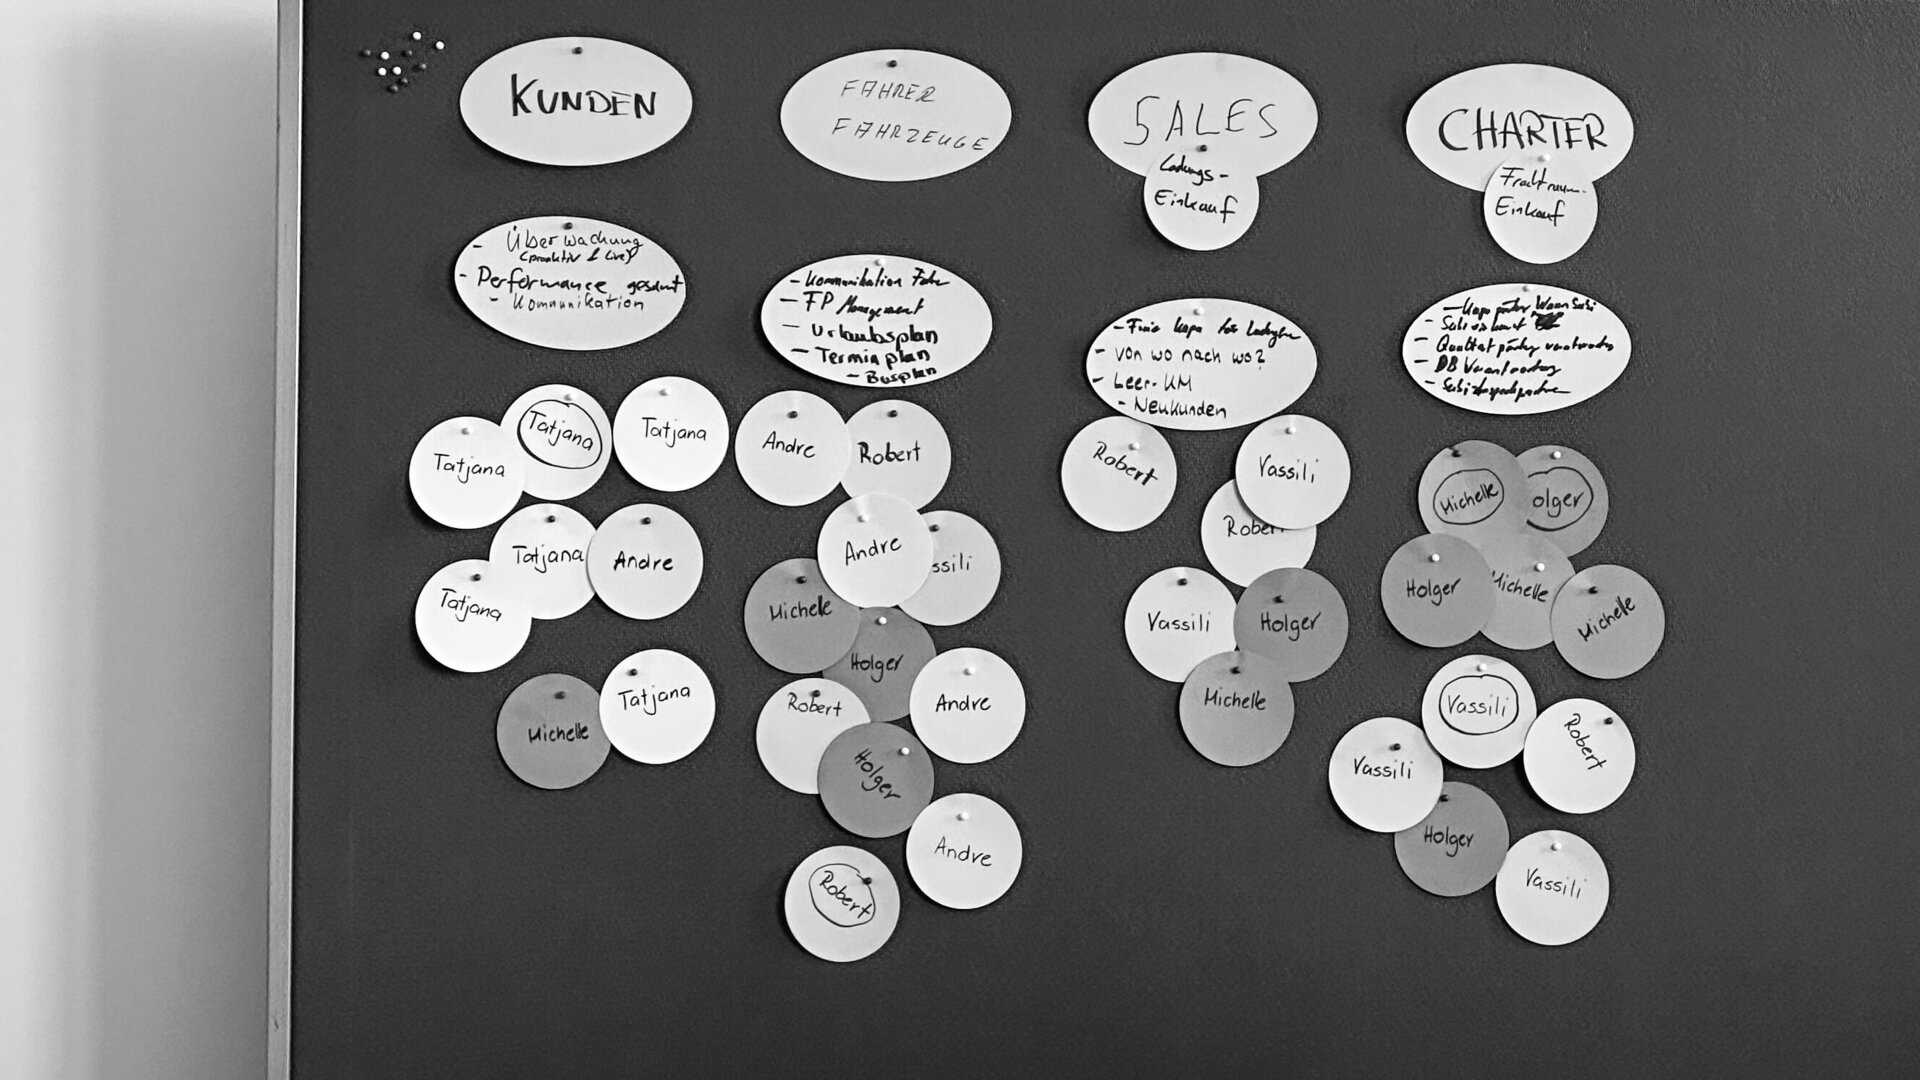 KUNDEN
FAHRER
FAHRZEUGE
SALES
Ladungs-
Einkauf
CHARTER
Frachtraum-
Einkauf
- Überwachung
(proaktiv & live)
- Performance gesamt
- Kommunikation
- Kommunikation Fahrer
- FP Management
- Urlaubsplan
- Terminplan
- Busplan
- Freie Kapa
- von wo nach wo?
- Leer-KM
- Neukunden
-
-
- Qualität
- DB Verantwortung
-
Tatjana
Tatjana
Tatjana
Tatjana
Tatjana
Andre
Michelle
Tatjana
Andre
Robert
Andre
ssili
Michelle
Holger
Robert
Andre
Holger
Andre
Robert
Robert
Vassili
Robert
Vassili
Holger
Michelle
Michelle
olger
Holger
Michelle
Michelle
Vassili
Vassili
Robert
Holger
Vassili